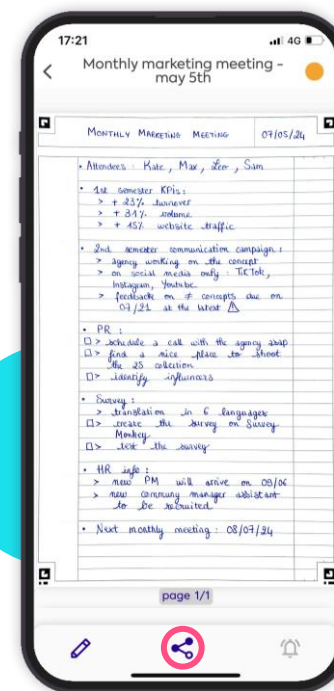 17:21
4G
Monthly marketing meeting -
may 5th
MONTHLY MARKETING MEETING 07/05/24
• Attendees : Kate, Max, Leo, Sam
• 1st semester KPIs :
> + 23% turnover
> + 31% volume
> + 15% website traffic
• 2nd semester communication campaign :
> agency working on the concept
> on social media only : TikTok,
Instagram, Youtube
> feedback on ≠ concepts due on
07/21 at the latest ⚠
• PR :
□> schedule a call with the agency asap
□> find a nice place to shoot
the 25 collection
□> identify influencers
• Survey :
> translation in 6 languages
□> create the survey on Survey
Monkey
□> test the survey
• HR info :
> new PM will arrive on 09/06
> new communy manager assistant
to be recruited
• Next monthly meeting : 08/07/24
page 1/1